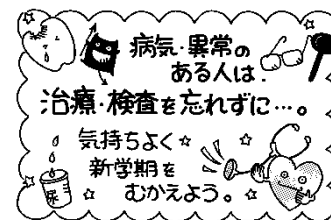 病気・異常の
ある人は.
治療・検査を忘れずに…。
気持ちよく☆
新学期を
むかえよう。
尿